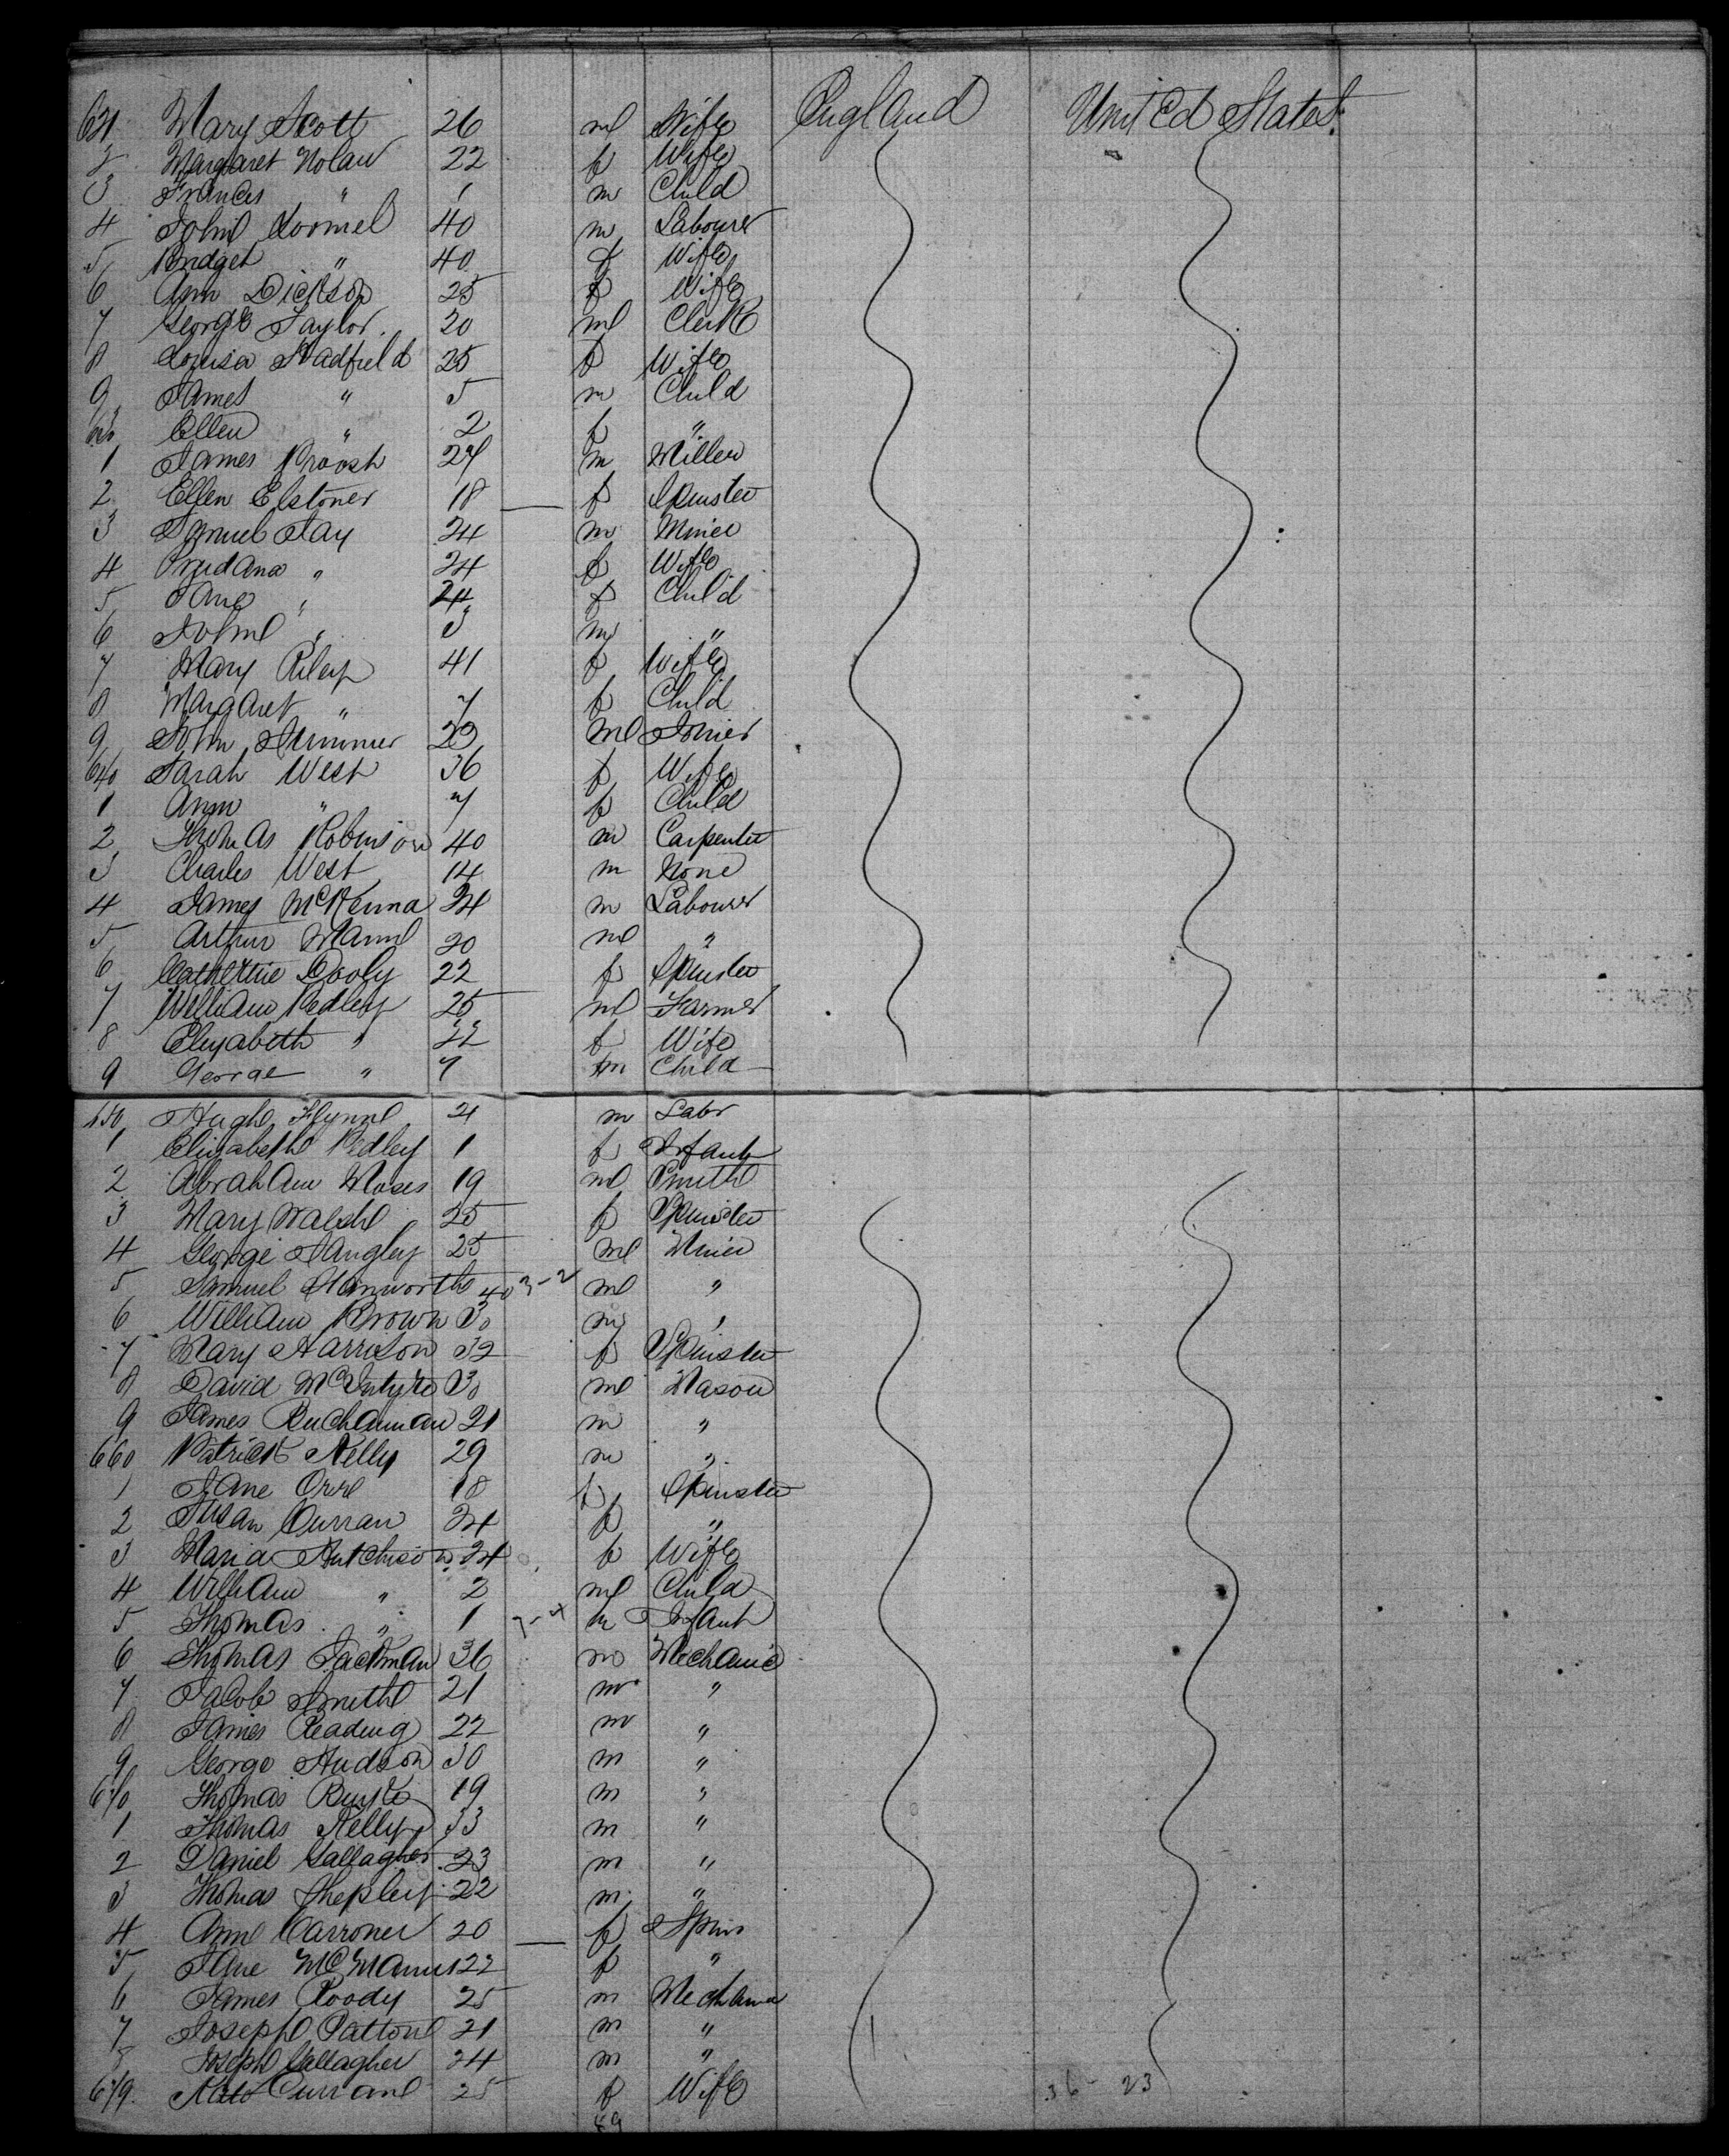 621 Mary Scott 26 m Wife England United States
2 Margaret Nolan 22 f Wife
3 Frances " 1 m Child
4 John 40 m Labourer
5 Bridget " 40 f Wife
6 Ann Dickson 25 f Wife
7 George Taylor 20 m Clerk
8 Louisa Hadfield 25 f Wife
9 James " 5 m Child
630 Ellen " 2 f "
1 James 24 m Miller
2 Ellen Elstoner 18 f Spinster
3 Samuel Jay 24 m Miner
4 " 24 f Wife
5 Jane " 24 f Child
6 John " 3 m "
7 Mary Riley 41 f Wife
8 Margaret " 7 f Child
9 John 23 m Joiner
640 Sarah West 36 f Wife
1 Ann " 7 f Child
2 Thomas Robinson 40 m Carpenter
3 Charles West 14 m None
4 James McKenna 24 m Labourer
5 Arthur Mann 20 m "
6 Catherine Dooly 22 f Spinster
7 William Pedley 25 m Farmer
8 Elizabeth " 22 f Wife
9 George " 7 m Child
650 Hugh Flynn 21 m Labr
1 Elizabeth Pedley 1 f Infant
2 Abraham Moses 19 m Smith
3 Mary Walsh 25 f Spinster
4 George Langley 25 m Miner
5 Samuel 40 3-2 m "
6 William Brown 30 m "
7 Mary Harrison 32 f Spinster
8 David McIntyre 30 m Mason
9 James Buchannan 21 m "
660 Patrick Kelly 29 m "
1 Jane Orre 18 f Spinster
2 Susan Curran 24 f "
3 Maria Hutchison 24 f Wife
4 William " 2 m Child
5 Thomas " 1 7-4 m Infant
6 Thomas Jackman 36 m Mechanic
7 Jacob Smith 21 m "
8 James Reading 22 m "
9 George Hudson 30 m "
670 Thomas Burke 19 m "
1 Thomas Kelly 33 m "
2 Daniel Gallagher 23 m "
3 Thomas Shepley 22 m "
4 Ann Carroner 20 f Spins
5 Jane McManus 22 f "
6 James Roody 25 m Mechanic
7 Joseph Patton 21 m "
8 Joseph Gallagher 24 m "
679 Kate Curran 25 f Wife 36-23
89